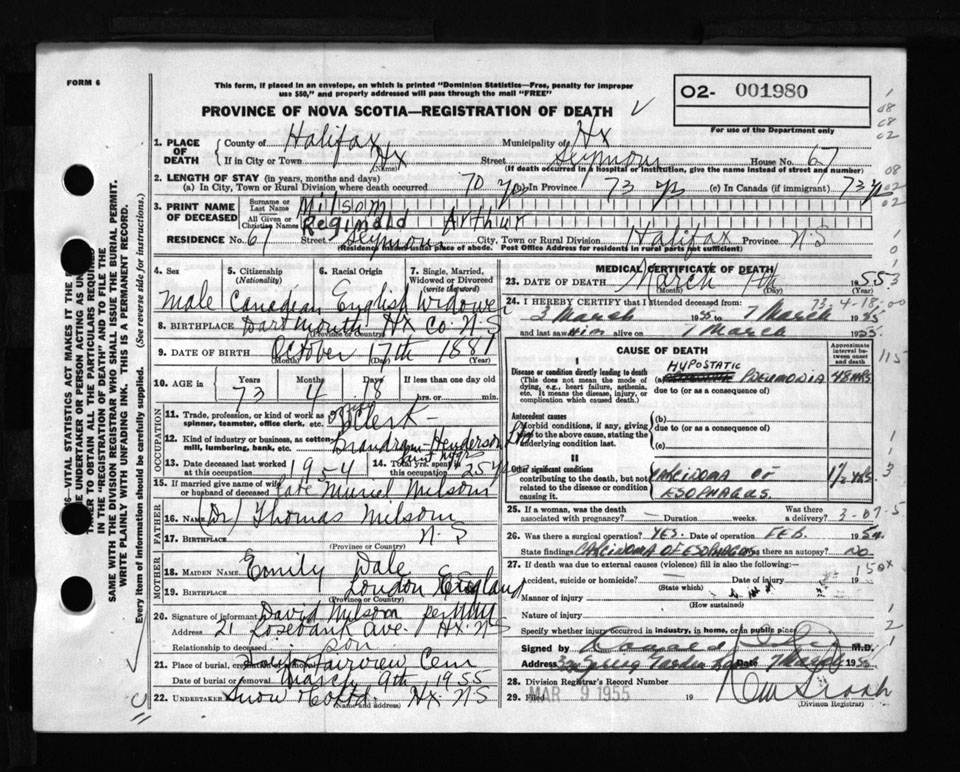 FORM 6
This form, if placed in an envelope, on which is printed "Dominion Statistics—Free, penalty for improper use $50," and properly addressed will pass through the mail "FREE"
PROVINCE OF NOVA SCOTIA—REGISTRATION OF DEATH
O2- 001980
For use of the Department only
1. PLACE OF DEATH County of Halifax Municipality of Hx
If in City or Town Hx (Name) Street Seymour House No. 67
(If death occurred in a hospital or institution, give the name instead of street and number)
2. LENGTH OF STAY (in years, months and days)
(a) In City, Town or Rural Division where death occurred 70 yrs (b) In Province 73 yrs (c) In Canada (if immigrant) 73 yrs
3. PRINT NAME OF DECEASED Surname or Last Name Milsom
All Given or Christian Names Reginald Arthur
RESIDENCE No. 67 Street Seymour City, Town or Rural Division Halifax Province N.S
(Residence means usual place of abode. Post Office Address for residents in rural parts not sufficient)
4. Sex 5. Citizenship (Nationality) 6. Racial Origin 7. Single, Married, Widowed or Divorced (write the word)
Male Canadian English Widower
8. BIRTHPLACE Dartmouth Hx Co. N.S
(Province or Country)
9. DATE OF BIRTH October 17th 1881
(Month) (Day) (Year)
10. AGE in Years Months Days If less than one day old
73 4 18 hrs. or min.
OCCUPATION
11. Trade, profession, or kind of work as spinner, teamster, office clerk, etc. Clerk
12. Kind of industry or business, as cotton mill, lumbering, bank, etc. Brandram-Henderson Ltd
Paint Mfgrs
13. Date deceased last worked at this occupation 1954 14. Total yrs. spent in this occupation 25 yrs
15. If married give name of wife or husband of deceased late Muriel Milsom
FATHER
16. Name (Dr) Thomas Milsom
17. Birthplace N.S
(Province or Country)
MOTHER
18. Maiden Name Emily Dale
19. Birthplace London England
(Province or Country)
20. Signature of informant David Milsom per
Address 21 Rosebank Ave. Hx. N.S
Relationship to deceased son
21. Place of burial, cremation or removal Fairview Cem
Date of burial or removal March 9th 1955
22. Undertaker Snow Hx. N.S
(Name and address)
MEDICAL CERTIFICATE OF DEATH
23. DATE OF DEATH March 7th 1955
(Month) (Day) (Year)
24. I HEREBY CERTIFY that I attended deceased from:
3 March 1955 to 7 March 1955
and last saw him alive on 7 March 1955.
CAUSE OF DEATH
Approximate interval between onset and death
I
Disease or condition directly leading to death
(This does not mean the mode of dying, e.g., heart failure, asthenia, etc. It means the disease, injury, or complication which caused death.)
(a) HYPOSTATIC PNEUMONIA 48 HRS.
due to (or as a consequence of)
Antecedent causes
Morbid conditions, if any, giving rise to the above cause, stating the underlying condition last.
(b)
due to (or as a consequence of)
(c)
II
Other significant conditions
contributing to the death, but not related to the disease or condition causing it.
CARCINOMA OF ESOPHAGUS. 1 1/2 YRS.
25. If a woman, was the death associated with pregnancy? — Duration weeks. Was there a delivery?
26. Was there surgical operation? YES. Date of operation FEB. 1954.
State findings CARCINOMA OF ESOPHAGUS Was there an autopsy? NO.
27. If death was due to external causes (violence) fill in also the following:
Accident, suicide or homicide? — Date of injury 19
(State which)
Manner of injury
(How sustained)
Nature of injury
Specify whether injury occurred in industry, in home, or in public place
Signed by M.D.
Address Spring Garden Rd Date 7 March 1955
28. Division Registrar's Record Number
29. Filed MAR 9 1955 19
(Division Registrar)
SAME WITH THE DIVISION REGISTRAR WHO SHALL ISSUE THE BURIAL PERMIT.
WRITE PLAINLY WITH UNFADING INK. THIS IS A PERMANENT RECORD.
Every item of information should be carefully supplied. (See reverse side for instructions.)